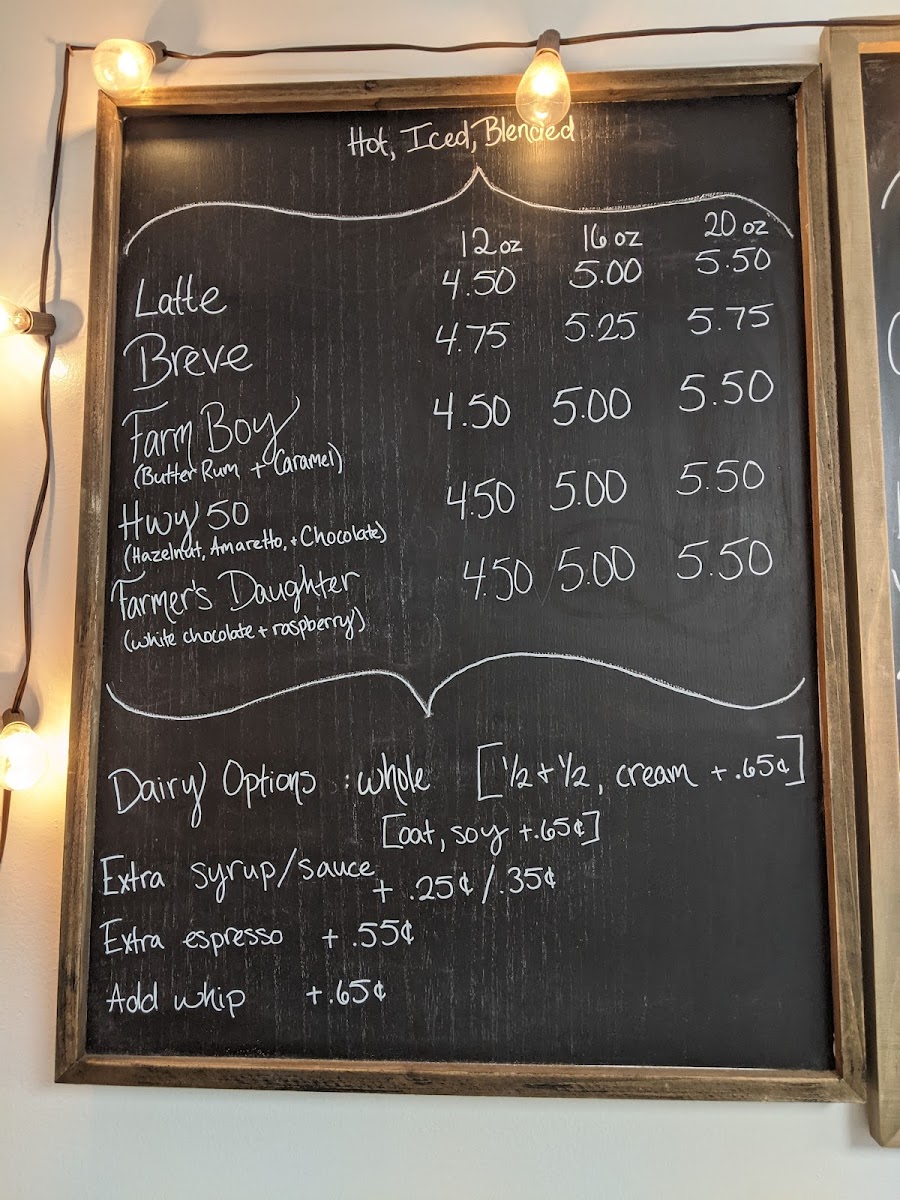 Hot, Iced, Blended
12 oz 16 oz 20 oz
Latte 4.50 5.00 5.50
Breve 4.75 5.25 5.75
Farm Boy 4.50 5.00 5.50
(Butter Rum + Caramel)
Hwy 50 4.50 5.00 5.50
(Hazelnut, Amaretto, + Chocolate)
Farmer's Daughter 4.50 5.00 5.50
(white chocolate + raspberry)
Dairy Options : whole [1/2 + 1/2, cream + .65¢]
[oat, soy +.65¢]
Extra syrup/sauce + .25¢/.35¢
Extra espresso + .55¢
Add whip +.65¢